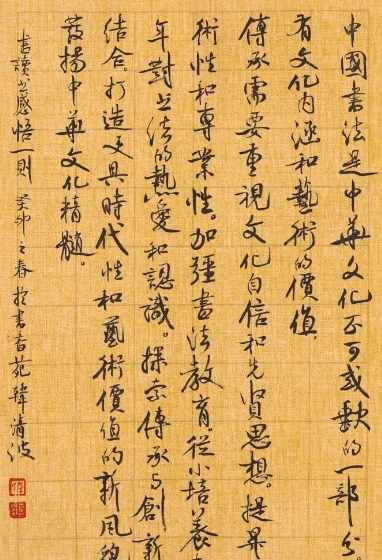 中國書法是中華文化不可或缺的一部分。
有文化内涵和藝術的價值。
傳承需要重視文化自信和先賢思想。提
術性和專業性。加強書法教育。從小培養
年對书法的熱愛和認識。探索傳承与創新
結合。打造更具時代性和藝術價值的新風
發揚中華文化精髓。
書讀小感悟一則 癸卯之春於書香苑韓清波